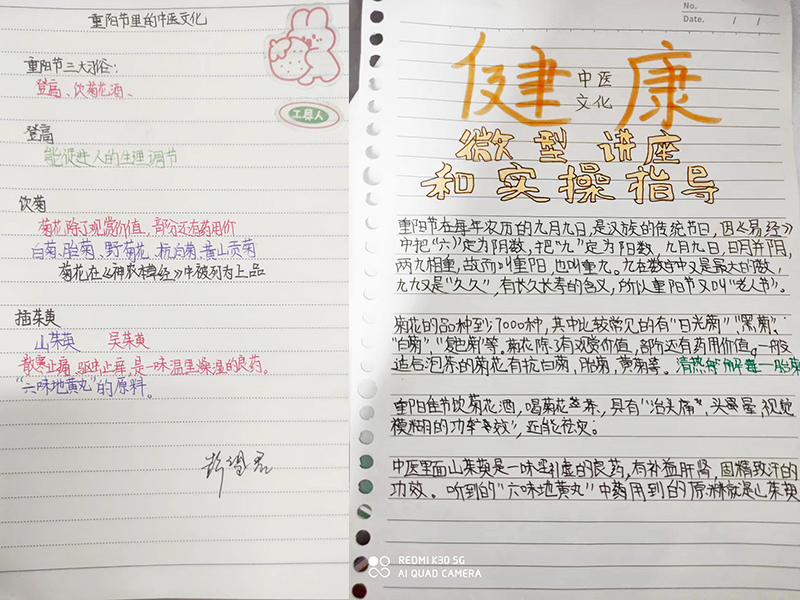 重阳节里的中医文化
重阳节三大习俗:
登高、饮菊花酒、
工具人
登高
能促进人的生理调节
饮菊
菊花除了观赏价值,部分还有药用价
白菊、胎菊、野菊花、杭白菊、黄山贡菊
菊花在《神农本草经》中被列为上品
插茱萸
山茱萸 吴茱萸
散寒止痛,驱虫止痒,是一味温里燥湿的良药。
“六味地黄丸”的原料。
No.
Date. / /
健康
中医
文化
微型讲座
和实操指导
重阳节在每年农历的九月九日,是汉族的传统节日,因《易经》
中把“六”定为阴数,把“九”定为阳数,九月九日,日月并阳,
两九相重,故而叫重阳,也叫重九。九在数字中又是最大的数,
九九又是“久久”,有长久长寿的含义,所以重阳节又叫“老人节”。
菊花的品种到7000种,其中比较常见的有“日光菊”、“黑菊”、
“白菊”“复色菊”等。菊花除了有观赏价值,部分还有药用价值,一般
适后泡茶的菊花有抗白菊,胎菊,黄菊等。清热解毒—胎菊
重阳佳节饮菊花酒,喝菊花茶,具有“治头痛”,头晕,视觉
模糊的功效”,还能祛灾。
中医里面山茱萸是一味补虚的良药,有补益肝肾,固精致汗的
功效。听到的“六味地黄丸”中药用到的原料就是山茱萸
REDMI K30 5G
AI QUAD CAMERA